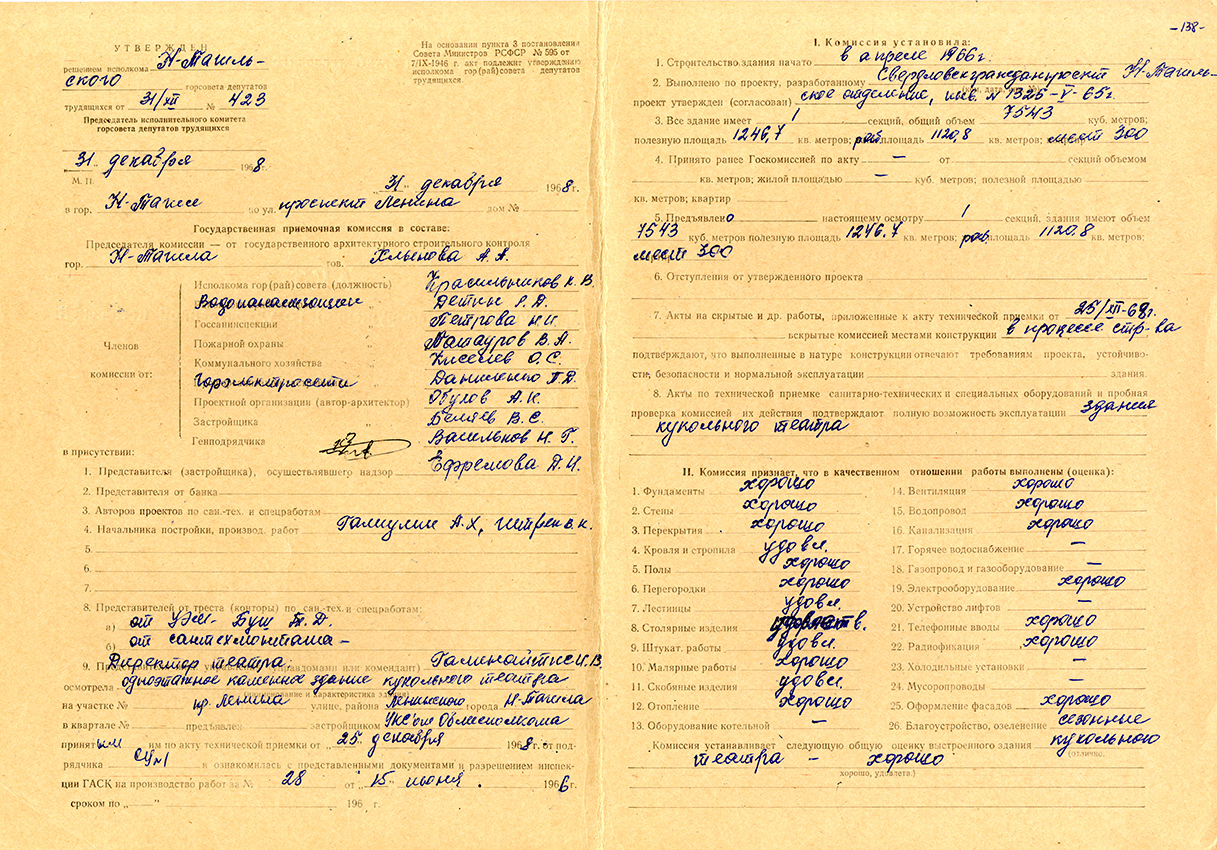 УТВЕРЖДЕН
решением исполкома Н-Тагиль-
ского горсовета депутатов
трудящихся от 31/XII № 423
Председатель исполнительного комитета
горсовета депутатов трудящихся
31 декабря 1968 г.
М. П.
На основании пункта 3 постановления
Совета Министров РСФСР № 595 от
7/IX-1946 г. акт подлежит утверждению
исполкома гор(рай)совета депутатов
трудящихся.
„31" декабря 1968 г.
в гор. Н-Тагиле по ул. проспект Ленина дом №
Государственная приемочная комиссия в составе:
Председателя комиссии — от государственного архитектурного строительного контроля
гор. Н-Тагила тов. Хлынова А. А.
Членов
комиссии от:
Исполкома гор(рай)совета (должность) Красильников К. В.
Водоканализации Деткин Г. Д.
Госсанинспекции Петрова Н.И.
Пожарной охраны „ Паташуров В. А.
Коммунального хозяйства „ Киселев О. С.
Горэлектросети „ Даниленко П. Д.
Проектной организации (автор-архитектор) Обухов А. К.
Застройщика „ Беляев В. С.
Генподрядчика Васильков Н. Г.
в присутствии: Ефремова П. И.
1. Представителя (застройщика), осуществлявшего надзор
2. Представителя от банка
3. Авторов проектов по сан.-тех. и спецработам
4. Начальника постройки, производ. работ Галиулин А. Х,
5.
6.
7.
8. Представителей от треста (конторы) по сан.-тех. и спецработам:
а) от УЭМ - Буш П. Д.
б) от сантехмонтажа —
Директор театра:
9. Представителей управления (управдомами или комендант)
осмотрела одноэтажное каменное здание кукольного театра
(наименование и характеристика здания)
на участке № пр. Ленина улице, района Ленинского города Н-Тагила
в квартале № предъявлен застройщиком УКС'ом Облисполкома
принятым им по акту технической приемки от „25" декабря 1968 г. от под-
рядчика СУ №1 и ознакомилась с представленными документами и разрешением инспек-
ции ГАСК на производство работ за № 28 от „15" июня 1966 г.
сроком по „ " 196 г.
-138-
I. Комиссия установила:
1. Строительство здания начато в апреле 1966 г.
2. Выполнено по проекту, разработанному Свердловскгражданпроект Н-Тагиль-
проект утвержден (согласован) ское отделение, инв. № 1325-V-65 г.
3. Все здание имеет 1 секций, общий объем 7543 куб. метров;
полезную площадь 1246,7 кв. метров; раб. площадь 1120,8 кв. метров; мест 300
4. Принято ранее Госкомиссией по акту — от секций объемом
кв. метров; жилой площадью — куб. метров; полезной площадью
кв. метров; квартир
5. Предъявлено настоящему осмотру 1 секций, здания имеют объем
7543 куб. метров полезную площадь 1246,7 кв. метров; раб. площадь 1120,8 кв. метров;
мест 300
6. Отступления от утвержденного проекта
7. Акты на скрытые и др. работы, приложенные к акту технической приемки от 25/XII-68г.
вскрытые комиссией местами конструкции в процессе стр-ва
подтверждают, что выполненные в натуре конструкции отвечают требованиям проекта, устойчиво-
сти, безопасности и нормальной эксплуатации здания.
8. Акты по технической приемке санитарно-технических и специальных оборудований и пробная
проверка комиссией их действия подтверждают полную возможность эксплуатации здания
кукольного театра
II. Комиссия признает, что в качественном отношении работы выполнены (оценка):
1. Фундаменты хорошо
2. Стены хорошо
3. Перекрытия хорошо
4. Кровля и стропила удовл.
5. Полы хорошо
6. Перегородки хорошо
7. Лестницы удовл.
8. Столярные изделия
9. Штукат. работы удовл.
10. Малярные работы хорошо
11. Скобяные изделия удовл.
12. Отопление хорошо
13. Оборудование котельной —
14. Вентиляция хорошо
15. Водопровод хорошо
16. Канализация хорошо
17. Горячее водоснабжение —
18. Газопровод и газооборудование —
19. Электрооборудование хорошо
20. Устройство лифтов —
21. Телефонные вводы хорошо
22. Радиофикация хорошо
23. Холодильные установки —
24. Мусоропроводы —
25. Оформление фасадов хорошо
26. Благоустройство, озеленение сезонные
Комиссия устанавливает следующую общую оценку выстроенного здания кукольного
(отлично,
театра — хорошо
хорошо, удовлетв.)